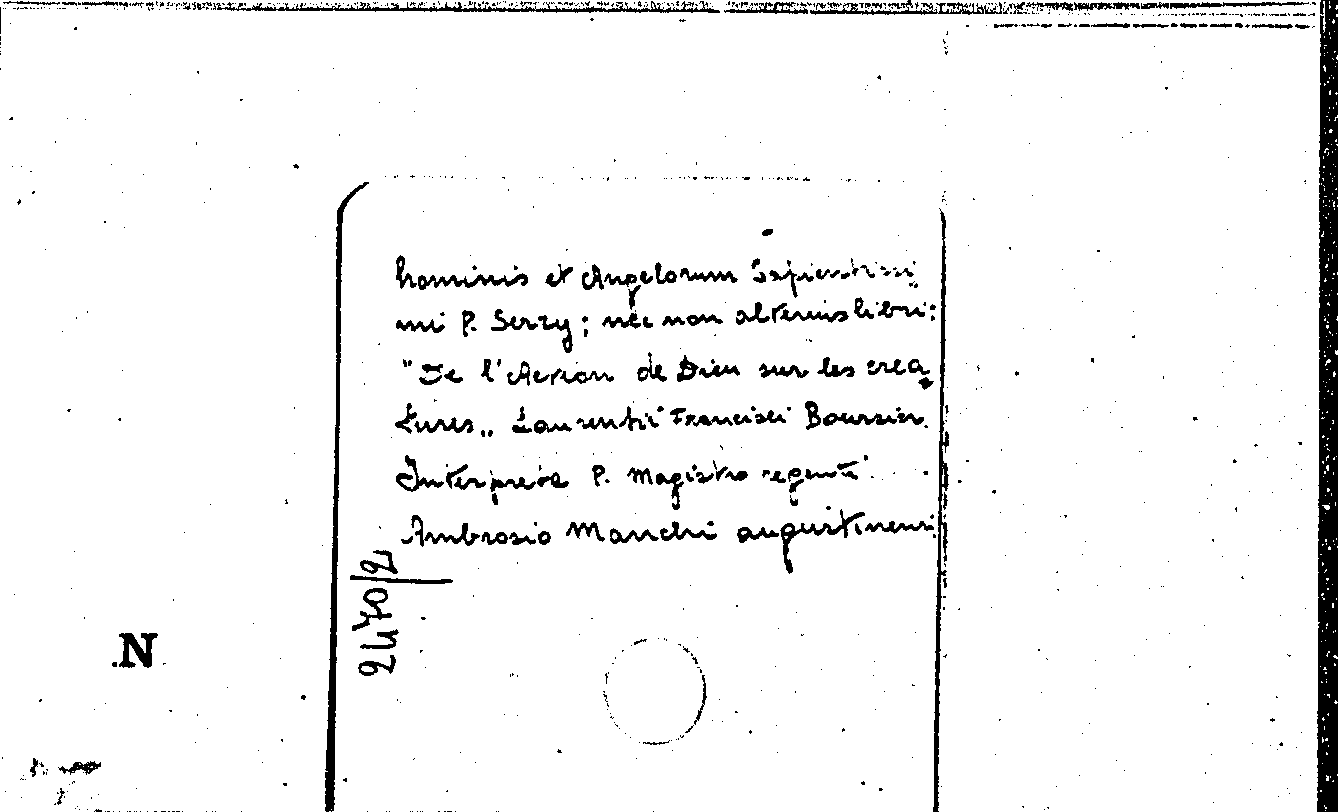 hominis et Angelorum Sapientissi
mi P. Serry; nec non alterius libri:
"De l'Action de Dieu sur les crea
tures" Laurentii Francisci Boursier
Interprete P. Magistro regenti
Ambrosio Manchi augustinensi
2470/2
N